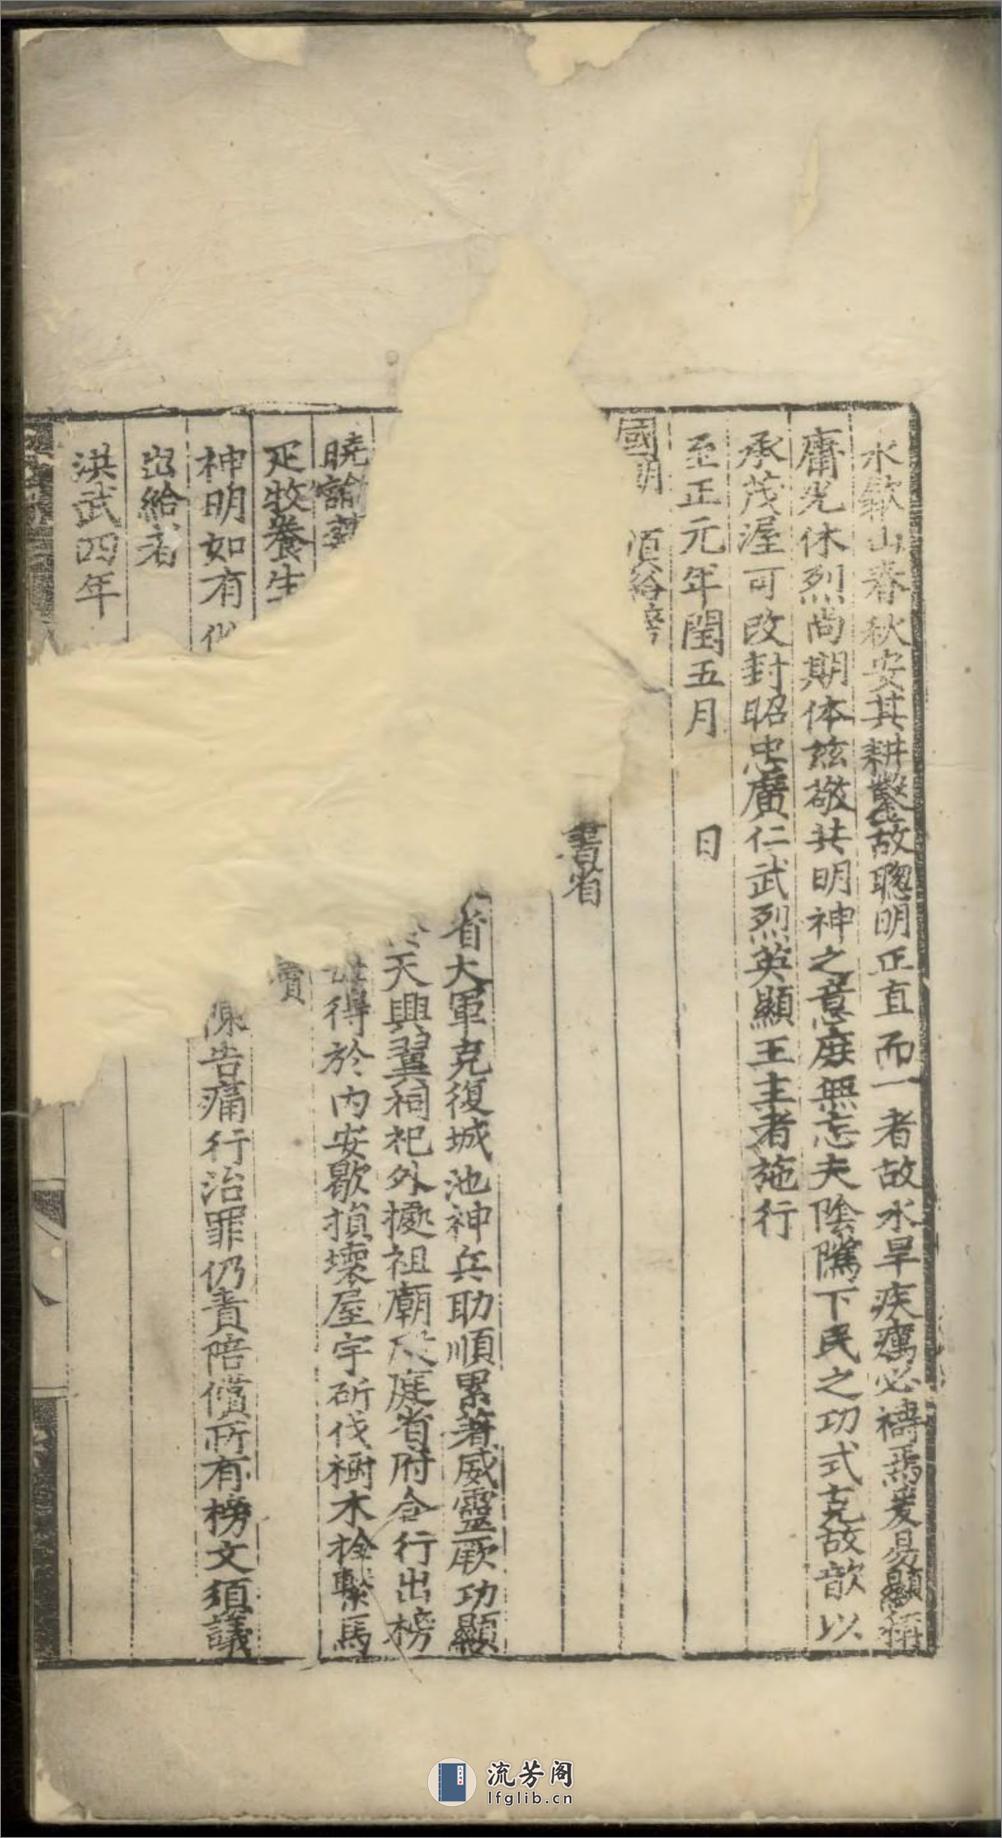 水歙山春秋安其耕鑿故聰明正直而一者故水旱疾癘必禱焉爰易顯
庸光休烈尚期体兹敬共明神之意庶無忘夫陰隲下民之功式克故歆以
承茂渥可改封昭忠廣仁武烈英顯王主者施行
至正元年閏五月 日
國朝
書省
省大軍克復城池神兵助順累著威靈厥功顯
天興翼祠祀外擬祖廟殿庭省府合行出榜
曉諭
得於内安歇損壞屋宇斫伐樹木拴繫馬
疋牧養生
賣
神明如有
陳告痛行治罪仍責陪償所有榜文須議
出給者
洪武四年
流芳阁
lfglib.cn